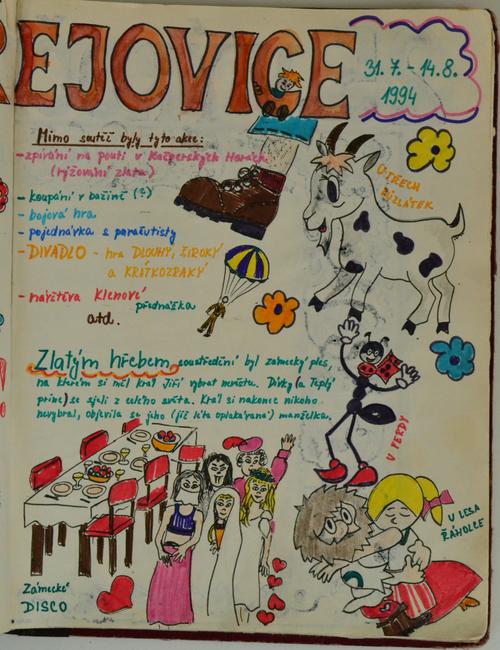 EJOVICE
31.7. - 14.8.
1994
Mimo soutěž byly tyto akce:
- zpívání na pouti v Kašperských Horách
(rýžování zlata)
- koupání v bažině (?)
- bojová hra
- pojednávka s parašutisty
- DIVADLO - hra DLOUHÝ, ŠIROKÝ
a KRÁTKOZRAKÝ
- návštěva Klenové
přednáška
atd.
U TŘECH
KŮZLÁTEK
Zlatým hřebem soustředění byl zámecký ples,
na kterém si měl král Jiří vybrat nevěstu. Dívky (a Teplý
princ) se sjeli z celého světa. Král si nakonec nikoho
nevybral, objevila se jeho (již léta oplakávaná) manželka.
U FERDY
U LESA
ŘÁHOLCE
Zámecké
DISCO